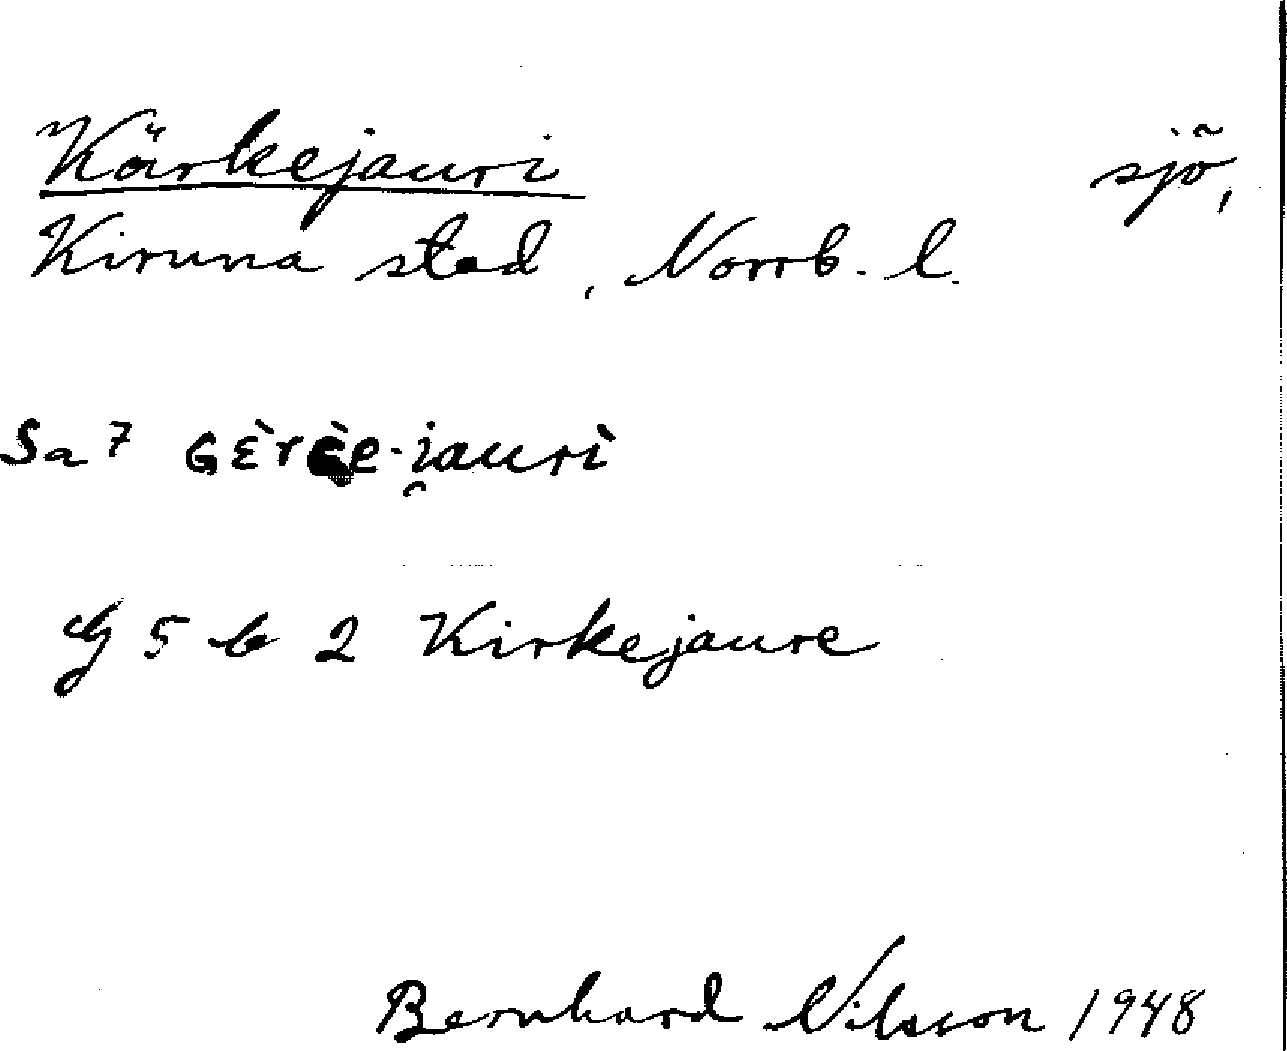 Kärkejauri sjö,
Kiruna stad, Norrb. l.
Sa 7
G 5 b 2 Kirkejaure
Bernhard Nilsson 1948